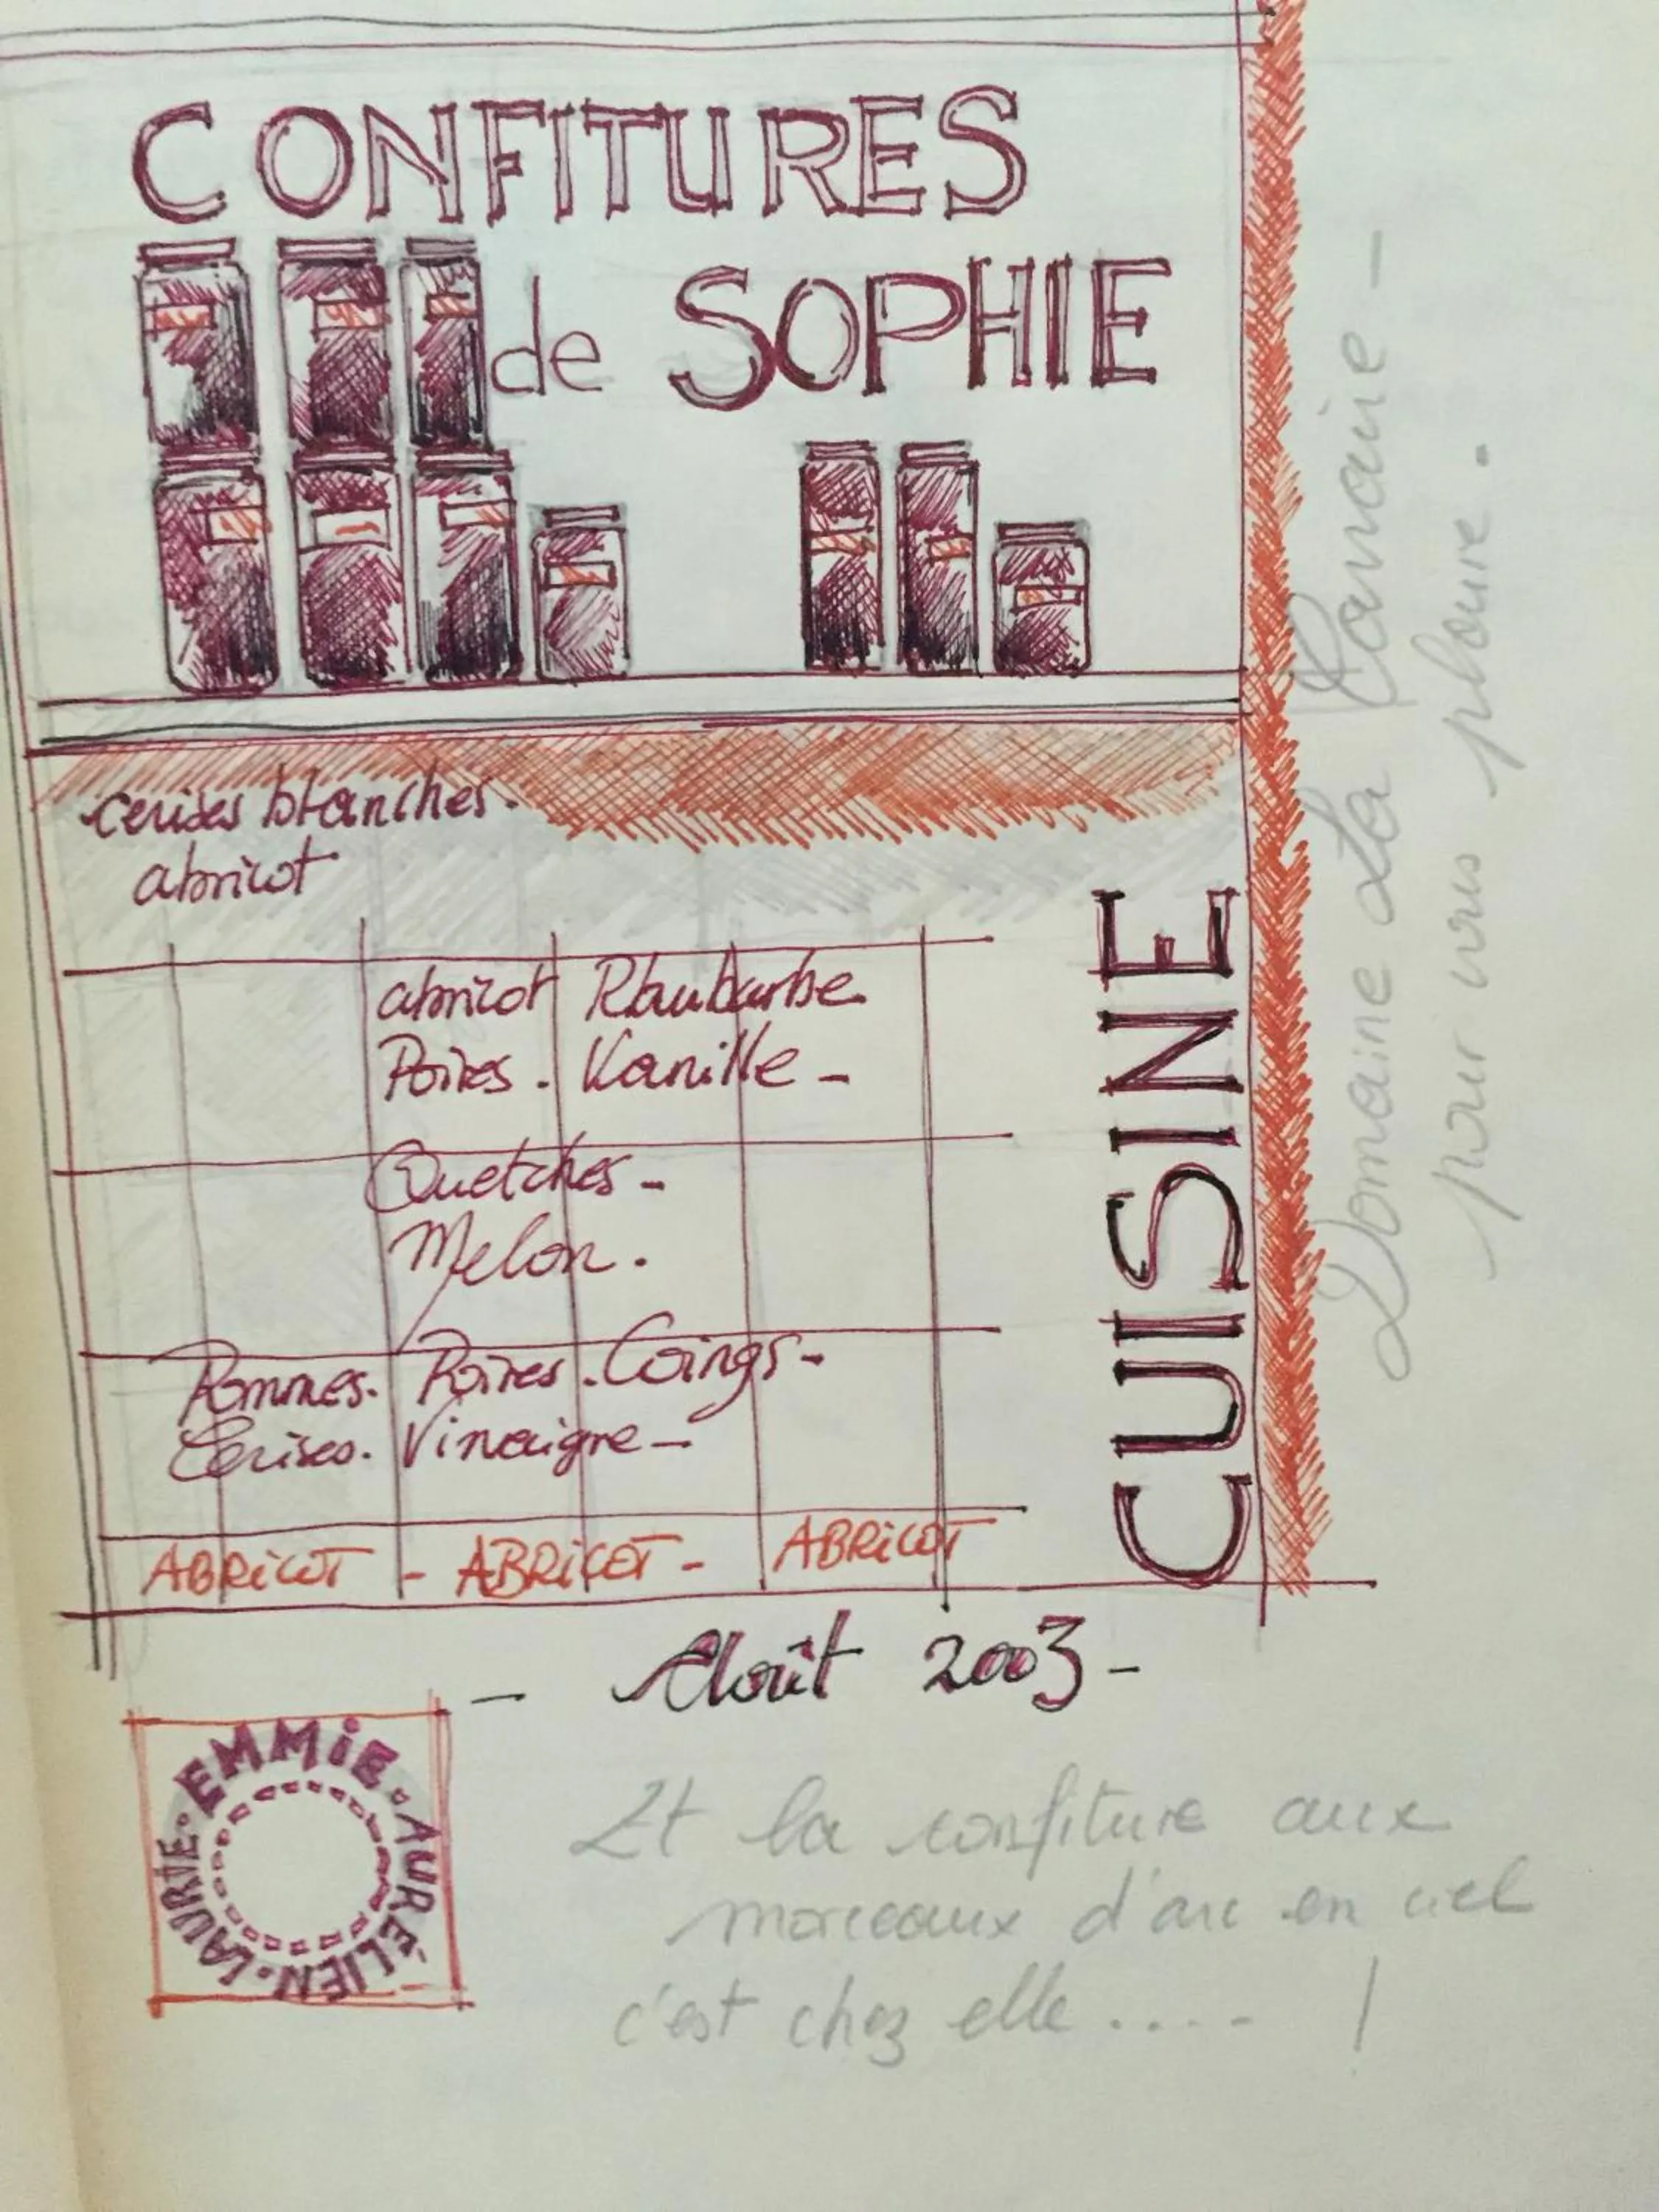 CONFITURES
de SOPHIE
cerises blanches.
abricot
abricot Rhubarbe
Poires. Vanille -
Quetches -
Melon.
Pommes. Poires. Coings -
Cerises. Vinaigre -
ABRiCOT - ABRiCOT - ABRiCOT
CUISINE
Domaine La
pour vous plaire.
- Août 2003 -
EMMiE. AURÉLIEN. LAURIE.
Et la confiture aux
morceaux d'arc en ciel
c'est chez elle ..... !